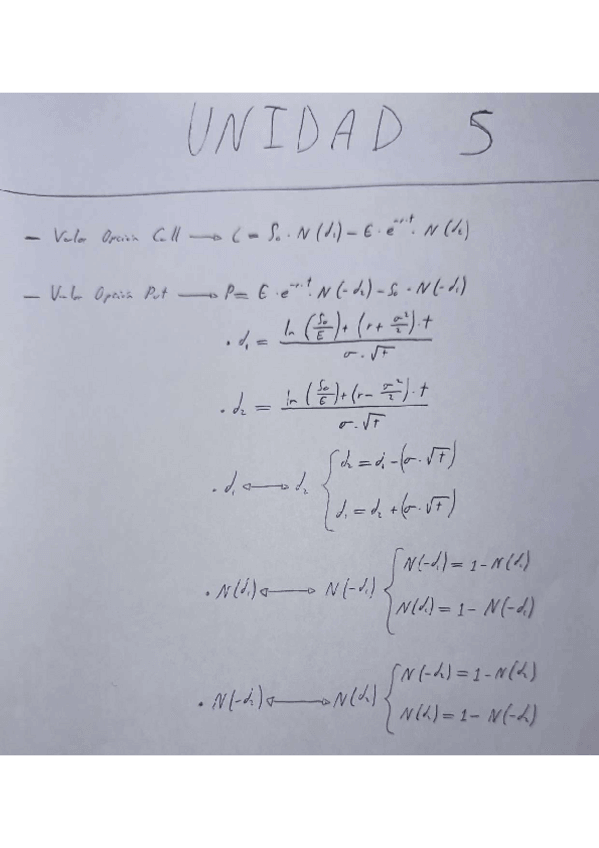 UNIDAD 5
— Valor Opción Call → C = S₀ · N(d₁) – E · e^(-r·t) · N(d₂)
— Valor Opción Put → P = E · e^(-r·t) · N(-d₂) – S₀ · N(-d₁)
· d₁ = (ln(S₀/E) + (r + σ²/2) · t) / (σ · √t)
· d₂ = (ln(S₀/E) + (r – σ²/2) · t) / (σ · √t)
· d₁ ↔ d₂ { d₂ = d₁ – (σ · √t)
d₁ = d₂ + (σ · √t)
· N(d₁) ↔ N(-d₁) { N(-d₁) = 1 – N(d₁)
N(d₁) = 1 – N(-d₁)
· N(-d₂) ↔ N(d₂) { N(-d₂) = 1 – N(d₂)
N(d₂) = 1 – N(-d₂)